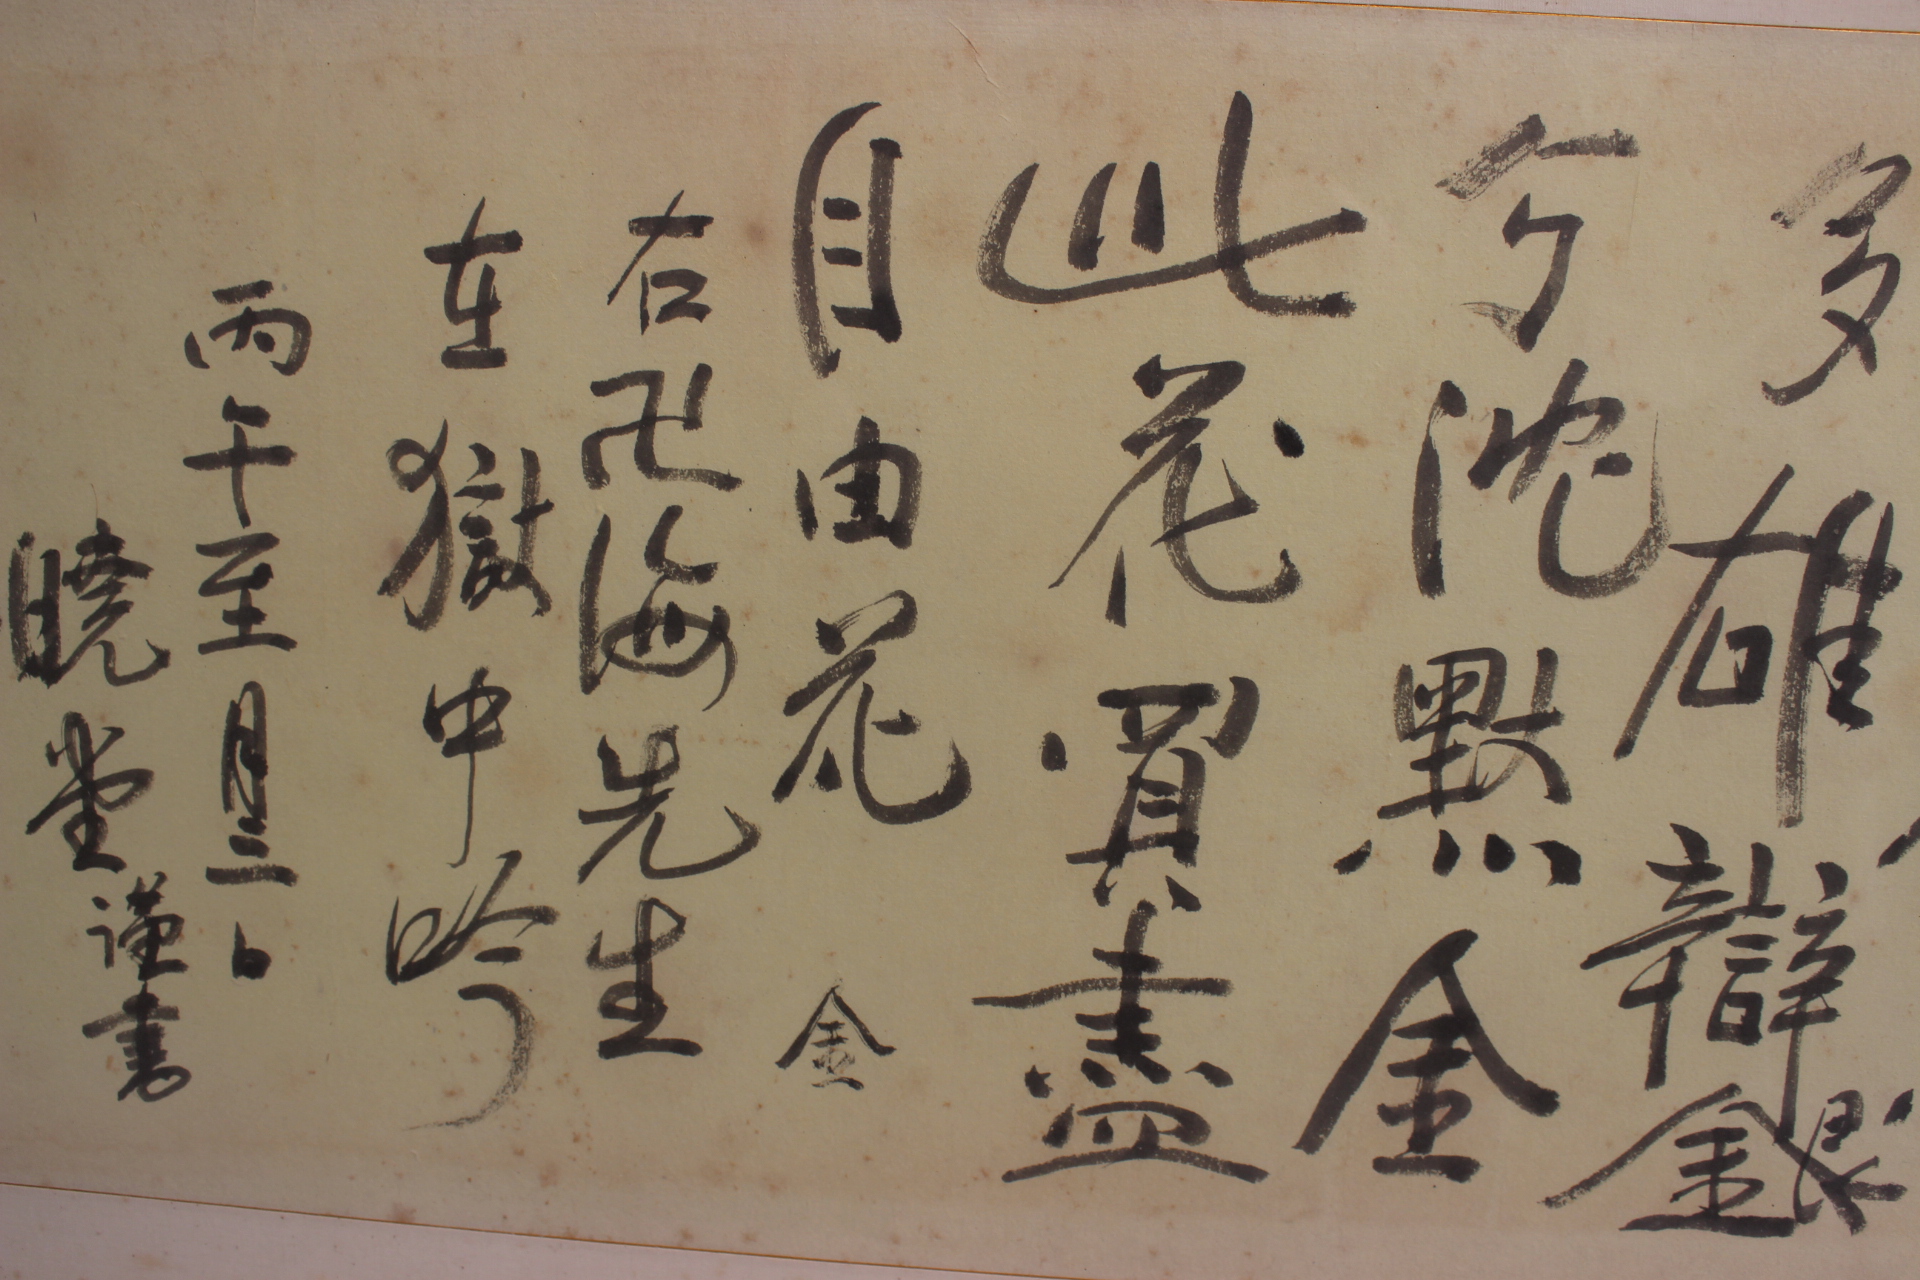 多雄辯銀
兮沈默金
此花買盡
自由花 金
右卍海先生
在獄中吟
丙午至月三日
曉堂謹書